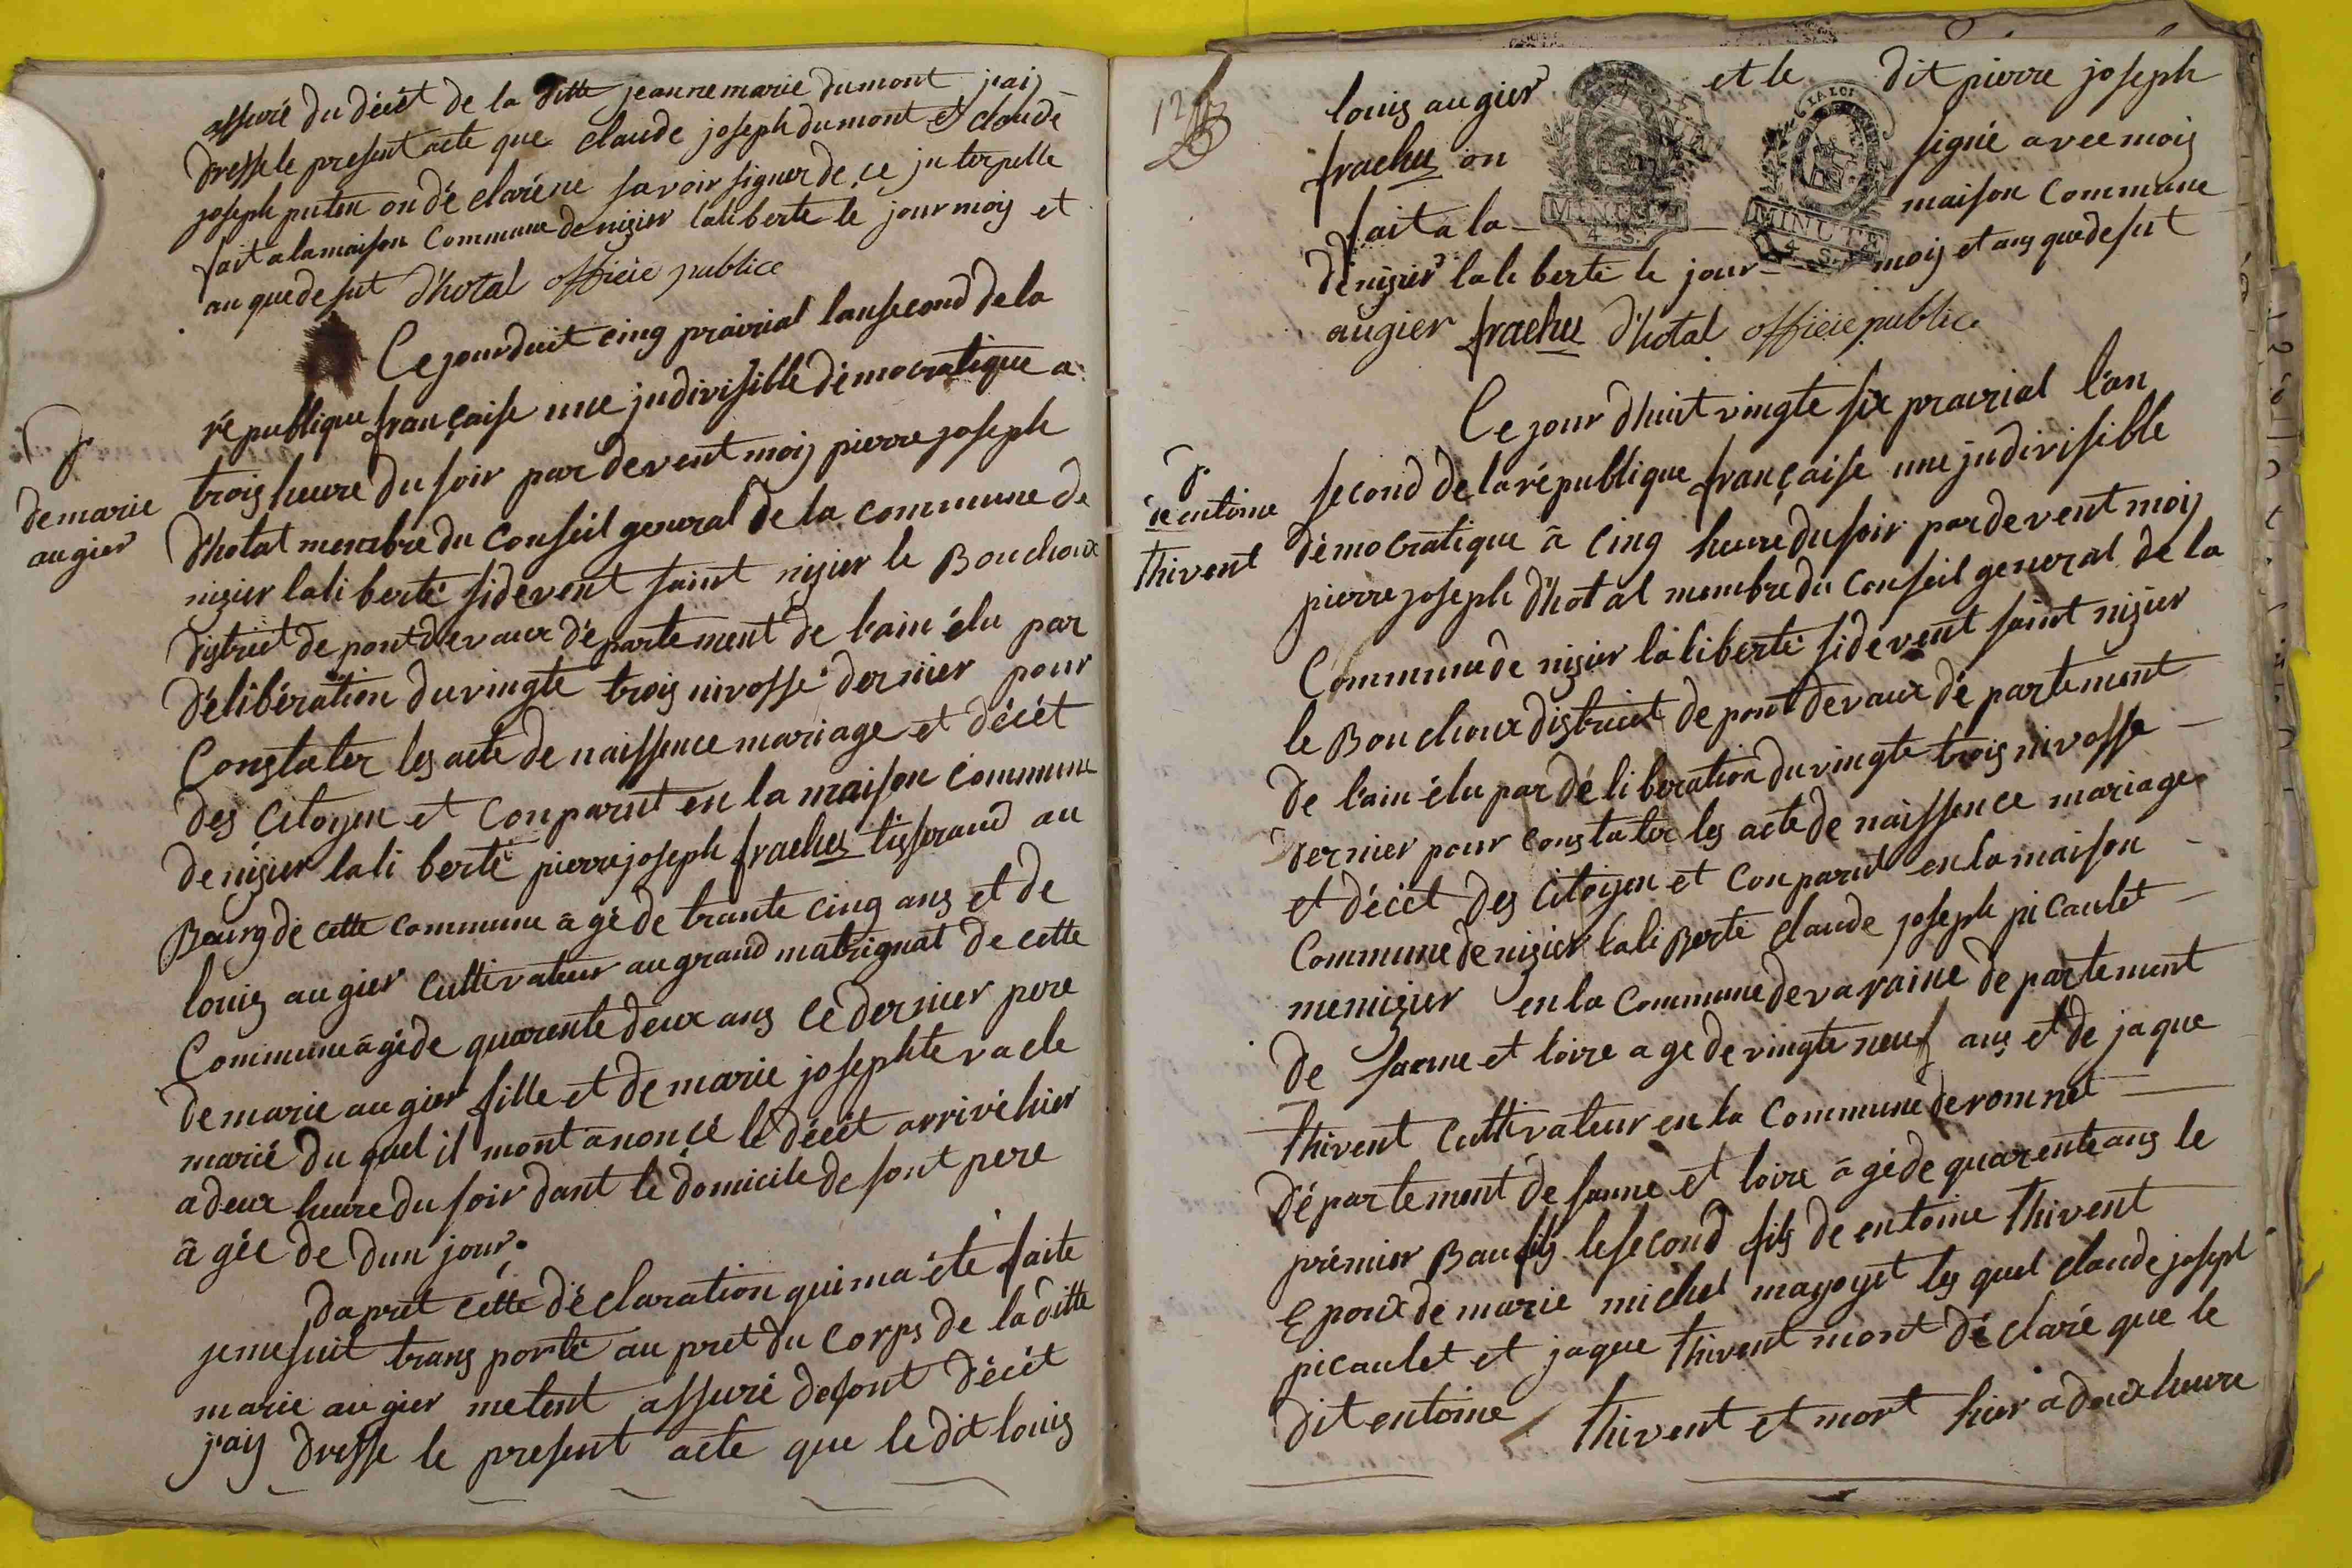 assuré du décèt de la ditte jeanne marie dumont j'aij
dressé le present acte que claude joseph dumont et claude
joseph puten on déclaré ne savoir signer de ce interpellé
fait a la maison commune de nizier laliberté le jour mois et
an que desut d'hotal officie publice
Ce jourduit cinq prairial lan second de la
république française une indivisible démocratique a
trois heure du soir par devent moij pierre joseph
d'hotal membre du conseil general de la commune de
nizier laliberté sidevent saint nizier le Bouchoux
district de pontdevaux département de l'ain élu par
délibération du vingte trois nivosse dernier pour
Constater les acte de naissence mariage et décét
des Citoyen et Conparut en la maison commune
de nizier laliberté pierre joseph frachet tisserand au
Bourg de cette commune âgé de trante cinq ans et de
louis augier Cultivateur au grand matrignat de cette
Commune âgé de quarente deux ans le dernier pere
de marie augier fille et de marie josephte vacle
marié du quel il mont anoncé le décét arrivé hier
a deux heure du soir dant le domicile de sont pere
âgée de dun jour.
d
de marie
augier
daprét cette déclaration qui ma été faite
je me suit transporté au pret du corps de la ditte
marie augier metent assuré de sont décét
j'aij dresse le present acte que le dit louis
12
louis augier et le dit pierre joseph
frachet on signé avec moij
fait a la maison commune
de nizier laliberté le jour mois et ans que desut
augier frachet d'hotal officie public
LA LOI
MINUTE
4 S.
MINUTE
4 S.
Ce jour d'huit vingte six prairial l'an
second de la république française une indivisible
démocratique à cinq heure du soir par devent moij
pierre joseph d'hotal membre du conseil general de la
Commune de nizier laliberté sidevent saint nizier
le Bouchoux district de pont devaux département
de l'ain élu par délibération du vingte trois nivosse
dernier pour constater les acte de naissence mariage
et décét des Citoyen et Conparut en la maison
Commune de nizier laliberté claude joseph picaulet
menizier en la commune de varaine departement
de saone et loire age de vingte neuf ans et de jaque
thivent Cultivateur en la Commune de romnet
département de saone et loire âgé de quarente ans le
prémier Baufils le second fils de entoine thivent
Epoux de marie michel mazoyet les quel claude joseph
picaulet et jaque thivent mont déclaré que le
dit entoine thivent et mort hier a deux heure
d
de entoine
thivent